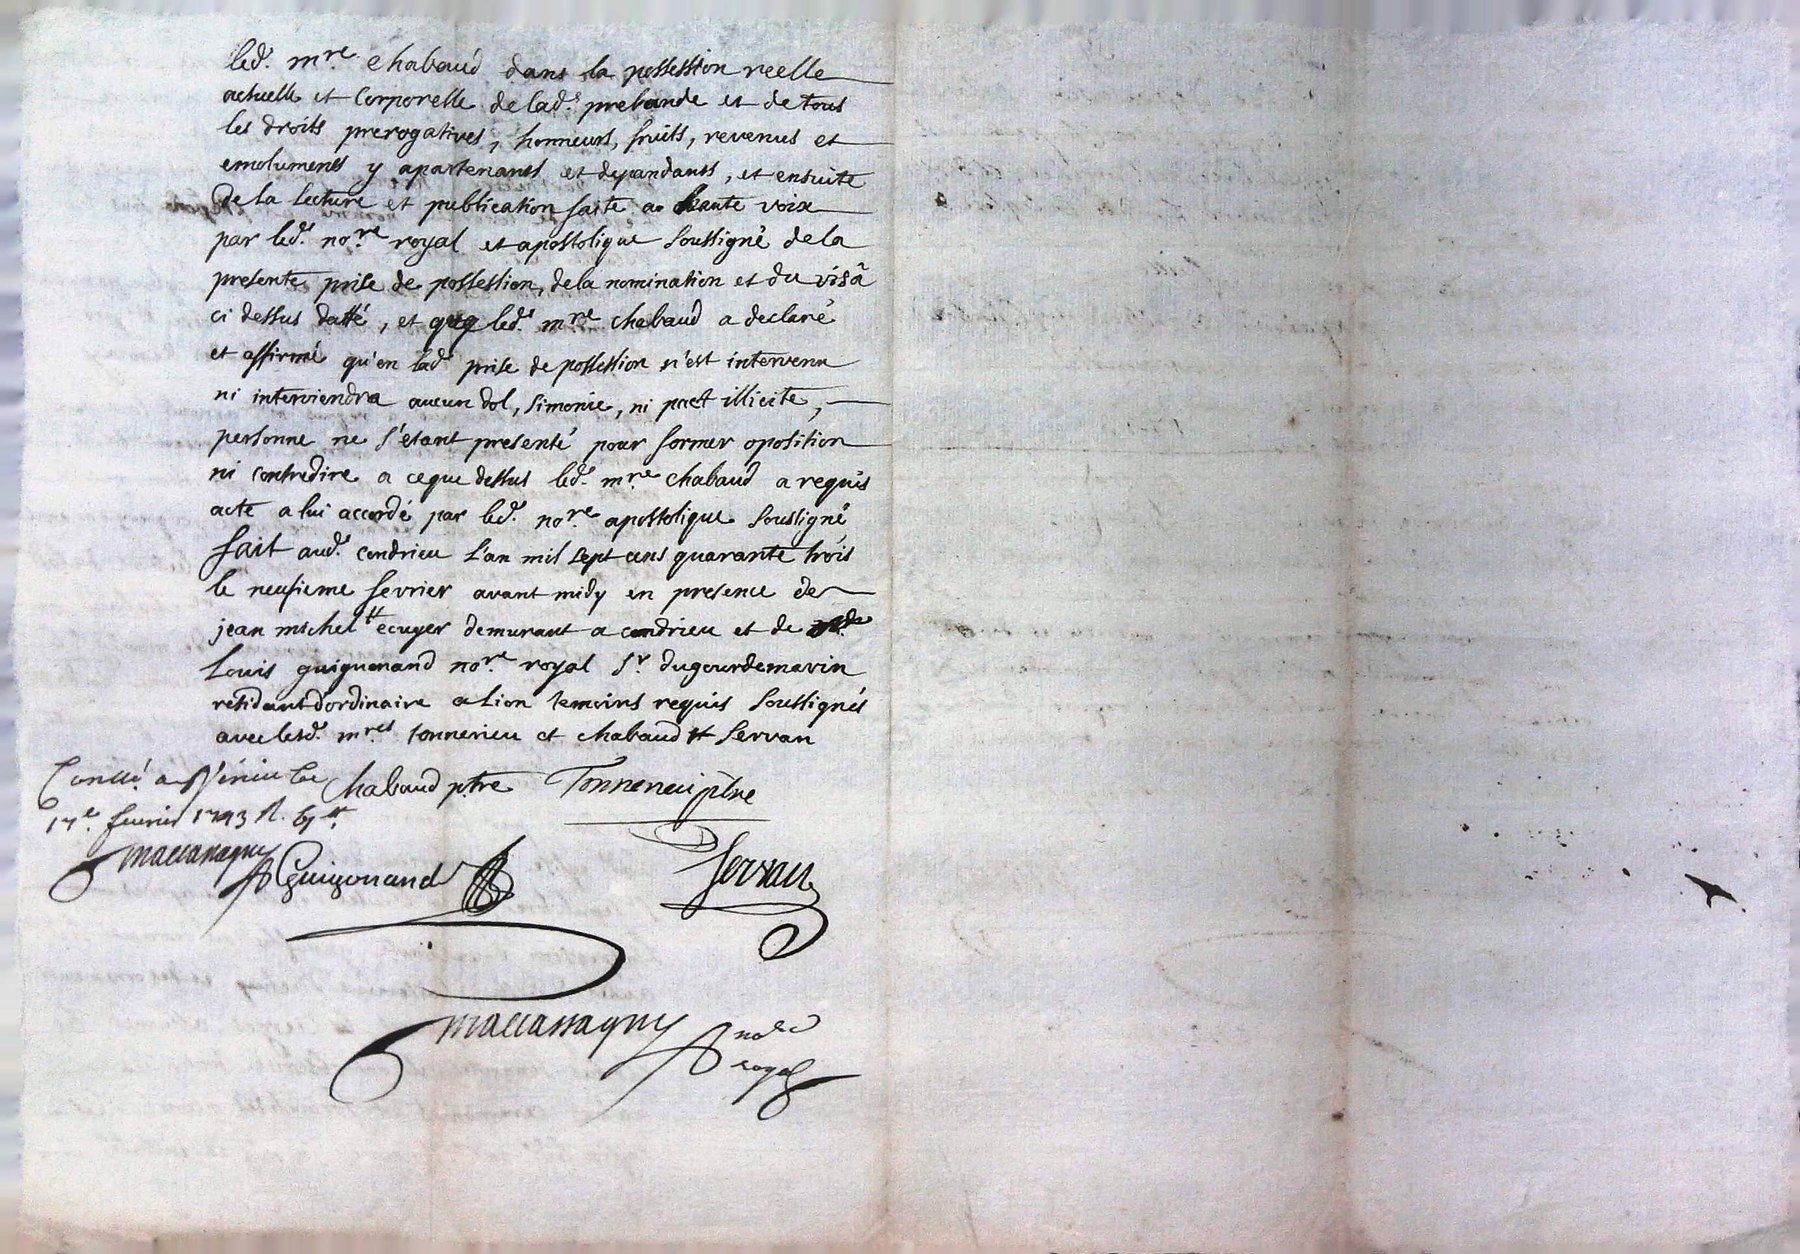 led. mre. chabaud dans la possession reelle
actuelle et corporelle de lad. prebande et de tous
les droits prerogatives, honneurs, fruits, revenus et
emoluments y apartenants et dependants, et ensuite
de la lecture et publication faite a haute voix
par led. nore. royal et apostolique soussigné de la
presente prise de possession, de la nomination et du visâ
ci dessus datté, et led. mre chabaud a declaré
et affirmé qu'en lad. prise de possession n'est intervenu
ni interviendra aucun dol, simonie, ni pact illicite,
personne ne s'etant presenté pour former oposition
ni contredire a ce que dessus led. mre. chabaud a requis
acte a lui accordé par led. nore. apostolique soussigné
fait aud. condrieu l'an mil sept cens quarante trois
le neufieme fevrier avant midy en presence de
jean michel ecuyer demurant a condrieu et de
Louis guigonand nore. royal sr. dugourdemarin
residant d'ordinaire a Lion temoins requis soussignés
avec lesd. mres. tonnerieu et chabaud servan
Chabaud ptre Tonnerieu ptre
17e. fevrier 1743 R.
maccassagny Guigonand Servan
maccassagny nore
royal